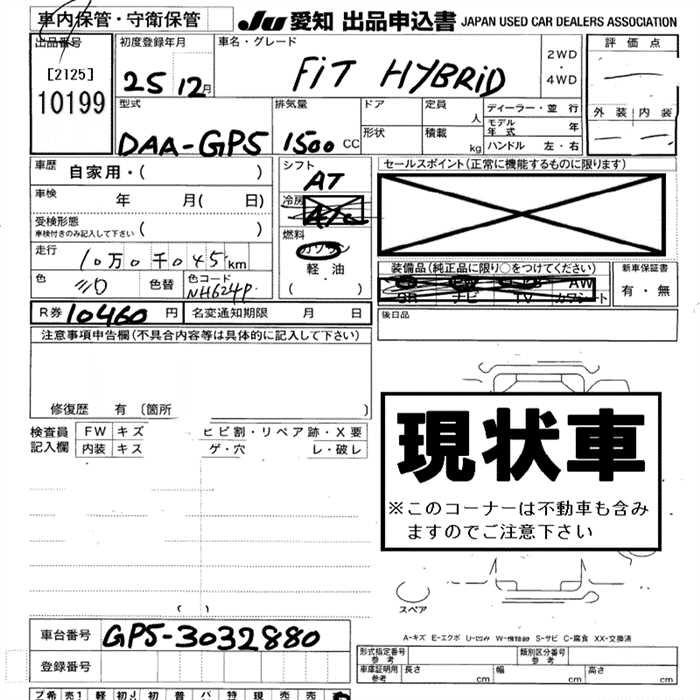 車内保管・守衛保管
JU 愛知 出品申込書 JAPAN USED CAR DEALERS ASSOCIATION
出品番号 初度登録年月 車名・グレード 評価点
[2125]
10199
25 12月 FiT HYBRiD 2WD ・ 4WD
外装 内装
型式 排気量 ドア 定員 人 ディーラー・並行
モデル年式 年
DAA-GP5 1500 CC 形状 積載 kg ハンドル 左・右
車歴 自家用・( ) シフト AT セールスポイント(正常に機能するものに限ります)
車検 年 月( 日) 冷房 A/C
受検形態
車検付きのみ記入して下さい ( ) 燃料 ガソリン
走行 10万0千045km 軽・油
装備品(純正品に限り○をつけてください) 新車保証書
色 シロ 色替 色コード NH624P ( ・ ) SR ナビ TV AW カワシート 有・無
R券 10460円 名変通知期限 月 日 後日品
注意事項申告欄(不具合内容等は具体的に記入して下さい)
修復歴 有 〔箇所 〕
現状車
※このコーナーは不動車も含み
ますのでご注意下さい
検査員記入欄 FW キズ ヒビ割・リペア跡・X要
内装 キズ ゲ・穴 レ・破レ
( )
スペア
A-キズ E-エクボ S-サビ C-腐食 XX-交換済
車台番号 GP5-3032880
登録番号
形式指定番号 参考 類別区分番号 参考
車庫証明用 参考 長さ cm 幅 cm 高さ cm